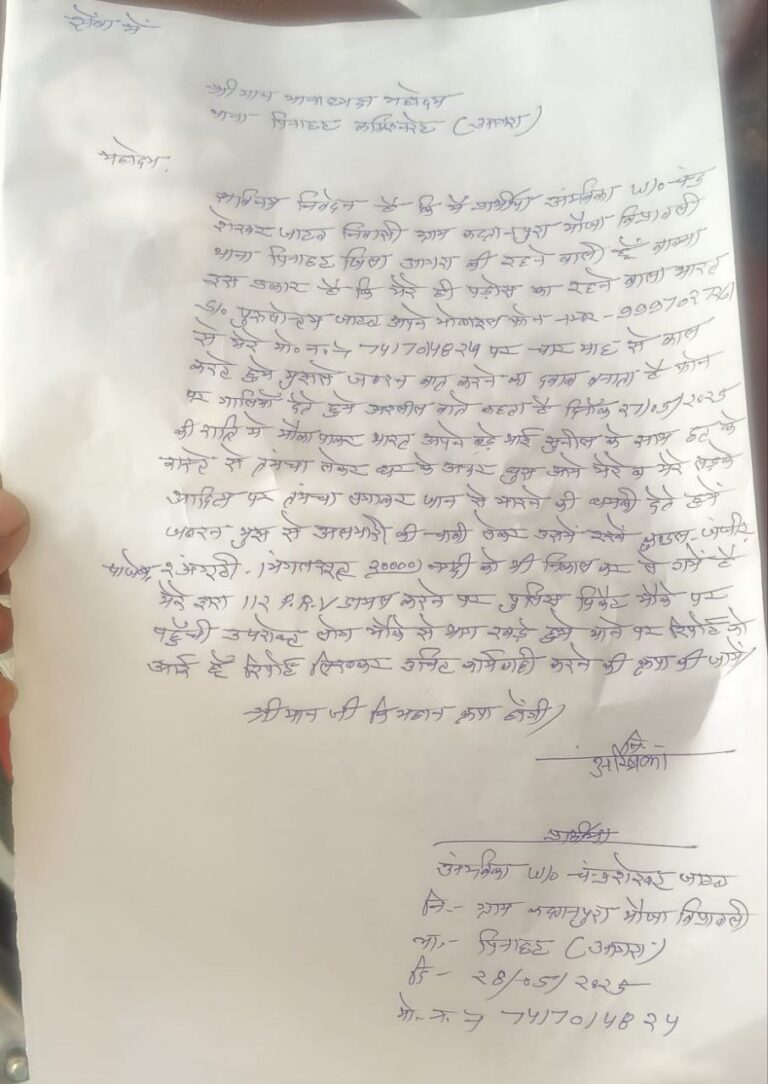 सेवा में
श्रीमान थानाध्यक्ष महोदय
थाना पिनाहट कमिश्नरेट (आगरा)
महोदय,
सविनय निवेदन है कि मैं प्रार्थीया अंम्बिका W/o चन्द्र
शेखर जाटव निवासी ग्राम मौजा विप्रावली
थाना पिनाहट जिला आगरा की रहने वाली हूँ वाक्या
इस प्रकार है कि मेरे ही पड़ोस का रहने वाला भारत
S/o पुरुषोत्तम जाटव अपने मोबाइल फोन नम्बर -
से मेरे मो० न० → 7417014824 पर चार माह से काल
करते हुये मुझसे जबरन बात करने का दबाव बनाता है फोन
पर गालियाँ देते हुये अश्लील बाते कहता है दिनाँक 27/05/2025
की रात्रि मे मौका पाकर भारत अपने बड़े भाई सुनील के साथ छत के
रास्ते से तमंचा लेकर घर के अन्दर घुस आये मेरे व मेरे लड़के
आदित्य पर तमंचा लगाकर जान से मारने की धमकी देते हुये
जबरन मुझ से अलमारी की चाबी लेकर उसमें रखे कुण्डल, जंजीर,
पाजेब, 2 अंगूठी, 1 मंगलसूत्र 20000) नगदी को भी निकाल कर ले गये है
मेरे द्वारा 112 P.R.V डायल करने पर पुलिस पिकैट मौके पर
पहुँची उपरोक्त लोग मौके से भाग खड़े हुये थाने पर रिपोर्ट को
आई हूँ रिपोर्ट लिखकर उचित कार्यवाही करने की कृपा की जाये।
श्रीमान जी कि महान कृपा होगी।
नि-
अम्बिका
प्रार्थीया
अंम्बिका W/o चंन्द्रशेखर जाटव
नि.- ग्राम मौजा विप्रावली
था.- पिनाहट (आगरा)
दि- 28/05/2025
मो. न. → 7417014824